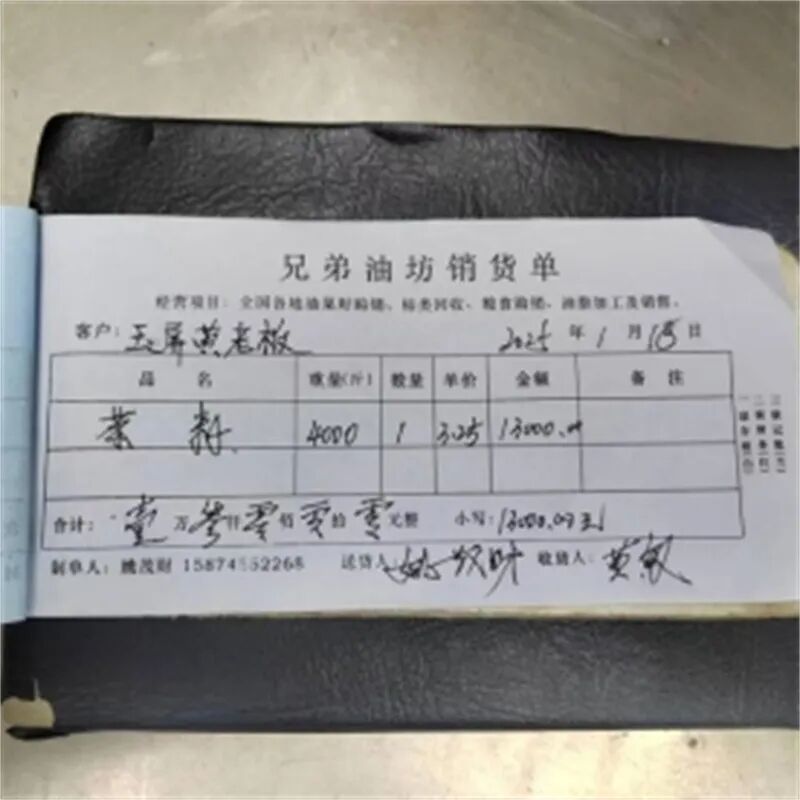 兄弟油坊销货单
经营项目：全国各地油菜籽购销、粕类回收、粮食购销、油脂加工及销售。
客户：玉屏黄老板 2025年1月18日
品名 重量(斤) 数量 单价 金额 备注
菜籽 4000 1 3.25 13000.00
合计：壹万叁仟零佰零拾零元整 小写：13000.00元
制单人：姚茂财 送货人 收货人：黄